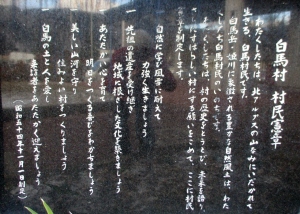 白馬村 村民憲章
わたくしたちは、北アルプスの山なみにいだかれて
生きる、白馬村民です。
白馬岳 姫川に象徴される豊かな自然風土は、わた
くしたち白馬村民のいのちです。
わたくしたちは、村の歴史をとうとび、未来を語り
すばらしい村にする願いをこめて、ここに村民
憲章を制定します。
一 自然に学び風雪に耐えて
力強く生きましょう
一 先祖の遺産を受け継ぎ
地域に根ざした文化を築きましょう
一 あたたかい心を育て
明日をつくる喜びをわかちましょう
一 美しい山河を守り
住みよい村をつくりましょう
一 白馬の土と人を愛し
来訪者をあたたかく迎えましょう
(昭和五十四年十一月一日制定)